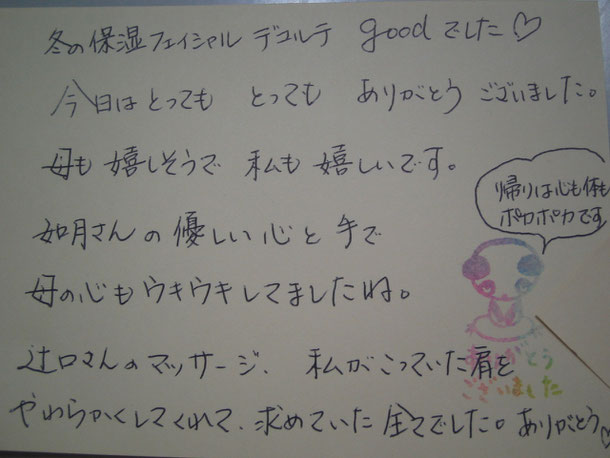 冬の保湿フェイシャル デコルテ goodでした♡
今日はとっても とっても ありがとう ございました。
母も 嬉しそうで 私も 嬉しいです。
帰りは心も体も
ポカポカです
如月さんの 優しい心と 手で
母の心も ウキウキしてましたね。
ありがとう
ございました
辻口さんのマッサージ、 私がこっていた肩を
やわらかくしてくれて、求めていた 全てでした。ありがとう♡